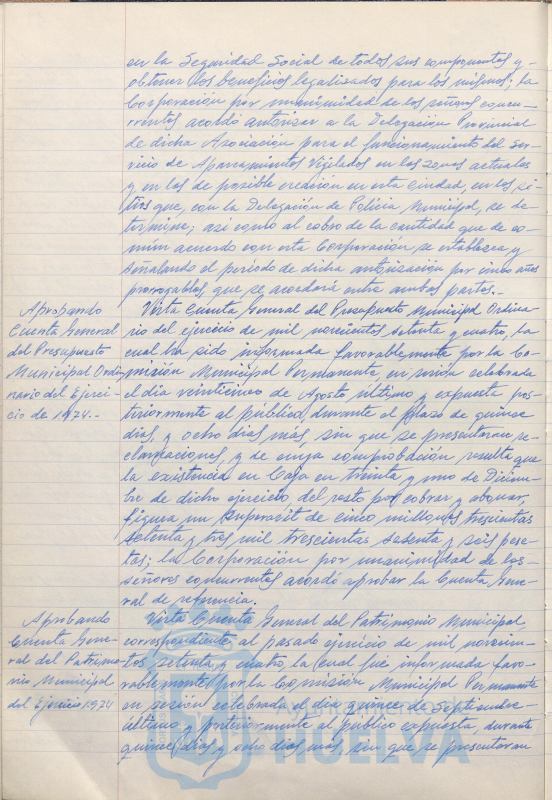 en la Seguridad Social de todos sus componentes y
obtener los beneficios legalizados para los mismos; la
Corporación por unanimidad de los señores concu-
rrentes acordó autorizar a la Delegación Provincial
de dicha Asociación para el funcionamiento del Ser-
vicio de Aparcamientos Vigilados en las zonas actuales
y en las de posible creación en esta Ciudad, en los si-
tios que, con la Delegación de Policía Municipal, se de-
termine; así como al cobro de la cantidad que de co-
mún acuerdo con esta Corporación se establezca y
señalando el período de dicha autorización por cinco años
prorrogables, que se acordará entre ambas partes.-
Aprobando
Cuenta General
del Presupuesto
Municipal Ordi-
nario del Ejerci-
cio de 1.974.-
Vista Cuenta General del Presupuesto Municipal Ordina-
rio del ejercicio de mil novecientos setenta y cuatro, la
cual ha sido informada favorablemente por la Co-
misión Municipal Permanente en sesión celebrada
el día veinticinco de Agosto último y expuesta pos-
teriormente al público, durante el plazo de quince
días, y ocho días más, sin que se presentaran re-
clamaciones, y de cuya comprobación resulta que
la existencia en Caja en treinta y uno de Diciem-
bre de dicho ejercicio del resto por cobrar y abonar,
figura un Superavit de cinco millones trescientas
setenta y tres mil trescientas sesenta y seis pese-
tas; la Corporación por unanimidad de los-
señores concurrentes acordó aprobar la Cuenta Gene-
ral de referencia.
Aprobando
Cuenta Gene-
ral del Patrimo-
nio Municipal
del Ejercicio 1974
Vista Cuenta General del Patrimonio Municipal,
correspondiente al pasado ejercicio de mil novecien-
tos setenta y cuatro, la cual fue informada favo-
rablemente por la Comisión Municipal Permanente
en sesión celebrada el día quince de Septiembre
último y posteriormente al público expuesta, durante
quince días y ocho días más, sin que se presentaran
HUELVA